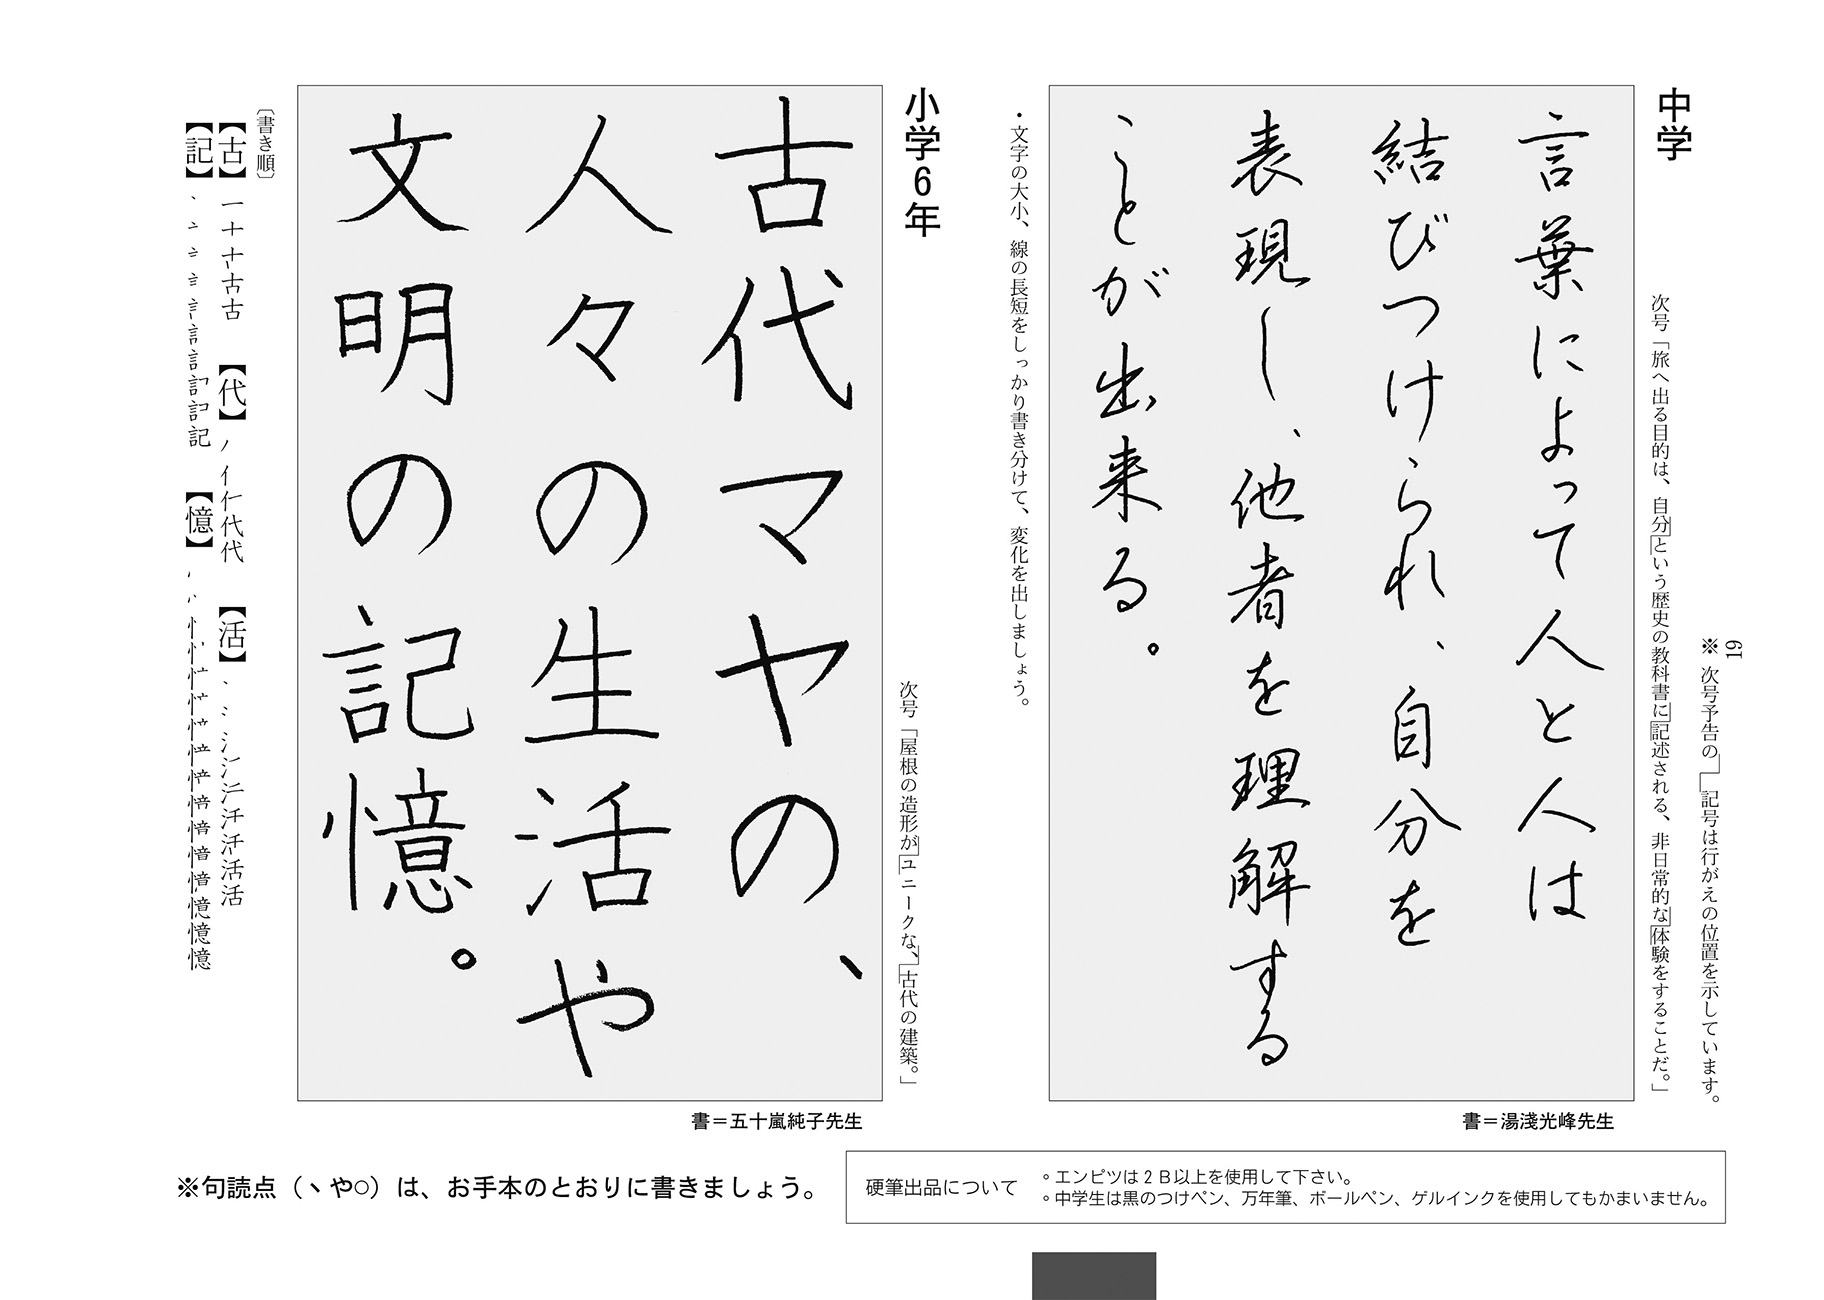 19
※次号予告の」「記号は行がえの位置を示しています。
中学
次号「旅へ出る目的は、自分」「という歴史の教科書に」「記述される、非日常的な」「体験をすることだ。」
言葉によって人と人は
結びつけられ、自分を
表現し、他者を理解する
ことが出来る。
書＝湯淺光峰先生
・文字の大小、線の長短をしっかり書き分けて、変化を出しましょう。
小学6年
次号「屋根の造形が」「ユニークな、」「古代の建築。」
古代マヤの、
人々の生活や
文明の記憶。
書＝五十嵐純子先生
〔書き順〕
【古】一十古古
【代】ノイ仁代代
【活】丶冫氵汗活活
【記】丶亠言言記記
【憶】忄憶憶
※句読点（、や○）は、お手本のとおりに書きましょう。
硬筆出品について
○エンピツは2B以上を使用して下さい。
○中学生は黒のつけペン、万年筆、ボールペン、ゲルインクを使用してもかまいません。